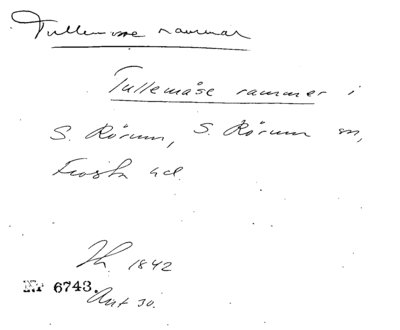 Tullemosse rammar
Tullemåse rammer i
S. Rörum, S. Rörum sn,
Frosta hd.
Th. 1842
Nr 6743.
Akt 30.